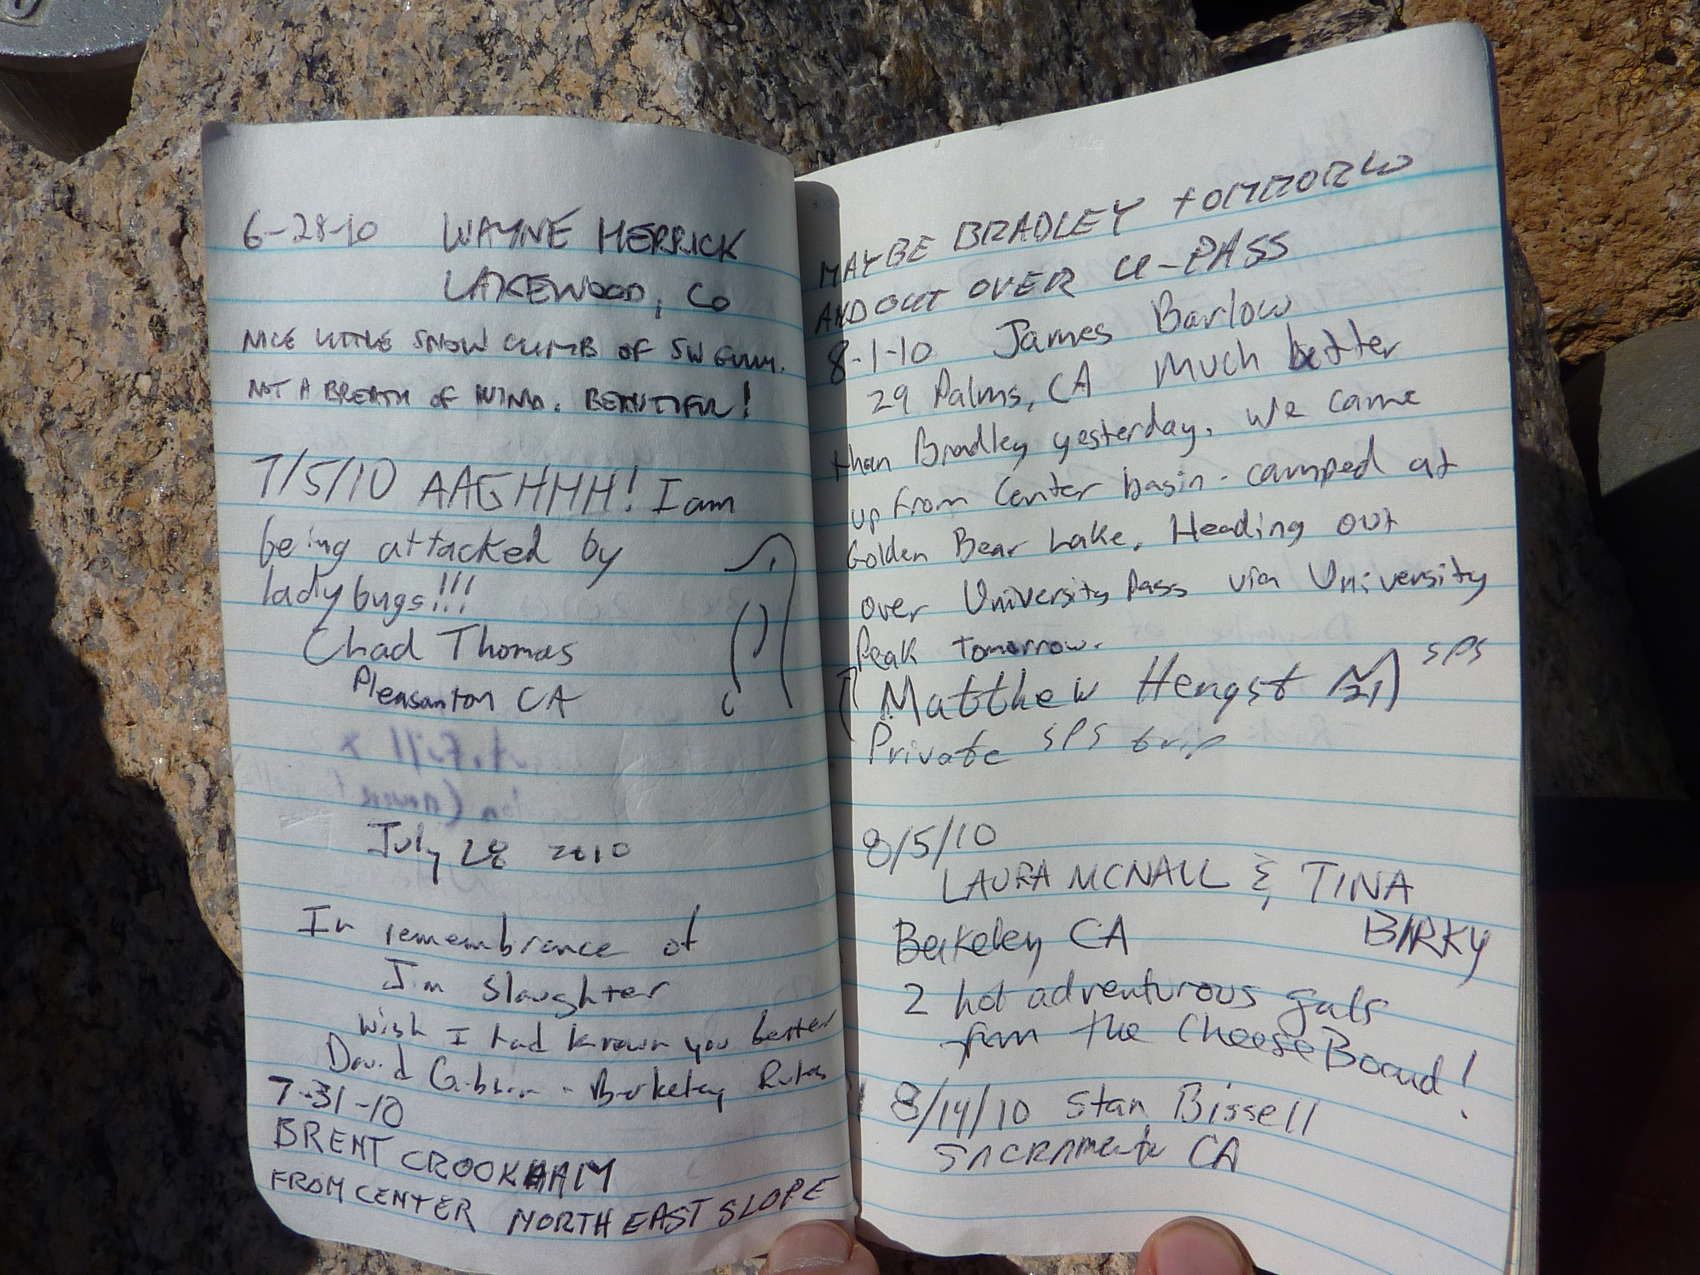 6-28-10 WAYNE HERRICK
LAKEWOOD, CO
NICE LITTLE SNOW CLIMB OF SW GULLY.
NOT A BREATH OF WIND. BEAUTIFUL!
7/5/10 AAGHHH! I am
being attacked by
ladybugs!!!
Chad Thomas
Pleasanton CA
July 28 2010
In remembrance of
Jim Slaughter
Wish I had known you better
David - Berkeley
7-31-10
BRENT CROOKHAM
FROM CENTER NORTH EAST SLOPE
MAYBE BRADLEY TOMMOROW
AND OUT OVER U-PASS
8-1-10 James Barlow
29 Palms, CA Much better
than Bradley yesterday. We came
up from Center basin - camped at
Golden Bear Lake. Heading out
over University Pass via University
Peak tomorrow.
Matthew Hengst SPS
Private SPS trip
8/5/10
LAURA MCNALL & TINA
BIRKY
Berkeley CA
2 hot adventurous gals
from the Cheese Board!
8/14/10 Stan Bissell
Sacramento CA